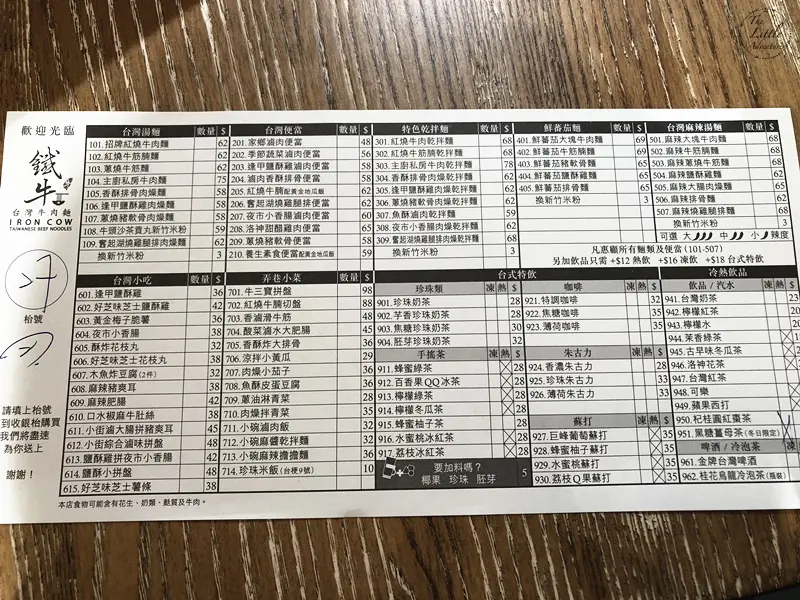 The
Little
Adventure
歡迎光臨
鐵牛
台灣牛肉麵
IRON COW
TAIWANESE BEEF NOODLES
枱號
請填上枱號
到收銀枱購買
我們將盡速
為你送上
謝謝！
台灣湯麵 數量 $
101. 招牌紅燒牛肉麵 62
102. 紅燒牛筋腩麵 62
103. 蔥燒牛筋麵 62
104. 主廚私房牛肉麵 75
105. 香酥排骨肉燥麵 58
106. 逢甲鹽酥雞肉燥麵 58
107. 蔥燒豬軟骨肉燥麵 58
108. 牛頭沙茶貢丸新竹米粉 59
109. 奮起湖雞腿排肉燥麵 62
換新竹米粉 3
台灣便當 數量 $
201. 家鄉滷肉便當 48
202. 季節蔬菜滷肉便當 56
203. 逢甲鹽酥雞滷肉便當 58
204. 滷肉香酥排骨便當 58
205. 紅燒牛腩配黃金地瓜飯 65
206. 奮起湖雞腿滷肉便當 62
207. 夜市小香腸滷肉便當 60
208. 洛神甜醋雞肉便當 65
209. 蔥燒豬軟骨便當 62
210. 養生素食便當配黃金地瓜飯 59
特色乾拌麵 數量 $
301. 紅燒牛肉乾拌麵 68
302. 紅燒牛筋腩乾拌麵 68
303. 主廚私房牛肉乾拌麵 78
304. 香酥排骨肉燥乾拌麵 62
305. 逢甲鹽酥雞肉燥乾拌麵 62
306. 蔥燒豬軟骨肉燥乾拌麵 62
307. 魚酥滷肉乾拌麵 59
308. 夜市小香腸肉燥乾拌麵 62
309. 奮起湖雞腿排肉燥乾拌麵 68
鮮蕃茄麵 數量 $
401. 鮮蕃茄大塊牛肉麵 69
402. 鮮蕃茄牛筋腩麵 69
403. 鮮蕃茄豬軟骨麵 65
404. 鮮蕃茄蔥燒牛筋麵 65
405. 鮮蕃茄排骨麵 65
換新竹米粉 3
台灣麻辣湯麵 數量 $
501. 麻辣大塊牛肉麵 68
502. 麻辣牛筋腩麵 68
503. 麻辣蔥燒牛筋麵 68
504. 麻辣豬軟骨麵 62
505. 麻辣大腸肉燥麵 62
506. 麻辣排骨麵 62
507. 麻辣蔥燒雞腿麵 68
換新竹米粉 3
可選 大 中 小 辣度
凡惠顧所有麵類及便當 (101-507)
另加飲品只需 +$12 熱飲 +$16 凍飲 +$18 台式特飲
台灣小吃 數量 $
601. 逢甲鹽酥雞 36
602. 好芝味芝士鹽酥雞 42
603. 黃金梅子脆薯 36
604. 夜市小香腸 36
605. 酥炸花枝丸 32
606. 好芝味芝士花枝丸 38
607. 木魚炸豆腐(2件) 32
608. 麻辣豬爽耳 38
609. 麻辣肥腸 42
610. 口水椒麻牛肚絲 38
611. 小街滷大腸拼豬爽耳 45
612. 小街綜合滷味拼盤 48
613. 鹽酥雞拼夜市小香腸 42
614. 鹽酥小拼盤 48
615. 好芝味芝士薯條 38
弄巷小菜 數量 $
701. 牛三寶拼盤 98
702. 紅燒牛腩切盤 88
703. 香滷滑牛筋 48
704. 酸菜滷水大肥腸 45
705. 香酥炸大排骨 38
706. 涼拌小黃瓜 29
707. 肉燥小茄子 36
708. 魚酥皮蛋豆腐 36
709. 蔥油淋青菜 28
710. 肉燥拌青菜 32
711. 小碗滷肉飯 32
712. 小碗麻醬乾拌麵 32
713. 小碗麻辣擔擔麵 36
714. 珍珠米飯(台梗9號) 10
台式特飲
珍珠類 凍 熱 $
901. 珍珠奶茶 28
902. 芋香珍珠奶茶 28
903. 焦糖珍珠奶茶 30
904. 胚芽珍珠奶茶 32
手搖茶 凍 熱 $
911. 蜂蜜綠茶 28
912. 百香果QQ冰茶 28
913. 檸檬綠茶 28
914. 檸檬冬瓜茶 28
915. 蜂蜜柚子茶 28
916. 水蜜桃冰紅茶 28
917. 荔枝冰紅茶 28
要加料嗎？
椰果 珍珠 胚芽 5
咖啡 凍 熱 $
921. 特調咖啡 32
922. 焦糖咖啡 35
923. 薄荷咖啡 35
朱古力 凍 熱 $
924. 香濃朱古力
925. 珍珠朱古力
926. 薄荷朱古力
蘇打 凍 熱 $
927. 巨峰葡萄蘇打 35
928. 蜂蜜柚子蘇打 35
929. 水蜜桃蘇打 35
930. 荔枝Q果蘇打 35
冷熱飲品
飲品 / 汽水 凍 熱 $
941. 台灣奶茶
942. 檸檬紅茶
943. 檸檬水
944. 茉香綠茶
945. 古早味冬瓜茶
946. 洛神花茶
947. 台灣紅茶
948. 可樂
949. 蘋果西打
950. 杞桂圓紅棗茶
951. 黑糖薑母茶(冬日限定)
啤酒 / 冷泡茶 凍
961. 金牌台灣啤酒
962. 桂花烏龍冷泡茶(瓶裝)
本店食物可能含有花生、奶類、麩質及牛肉。